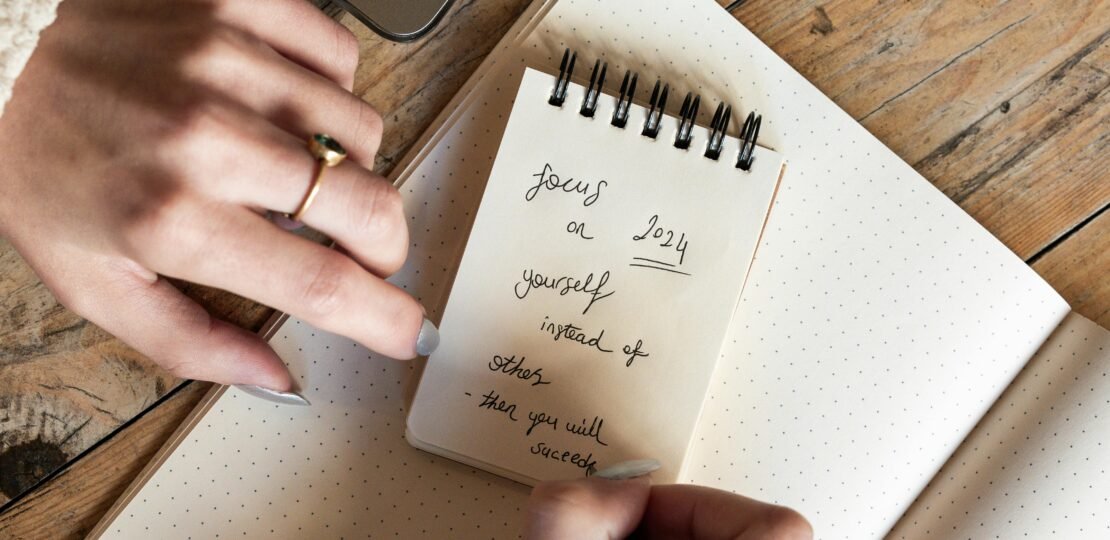 focus
on 2024
yourself
instead of
other
- then you will
suceed